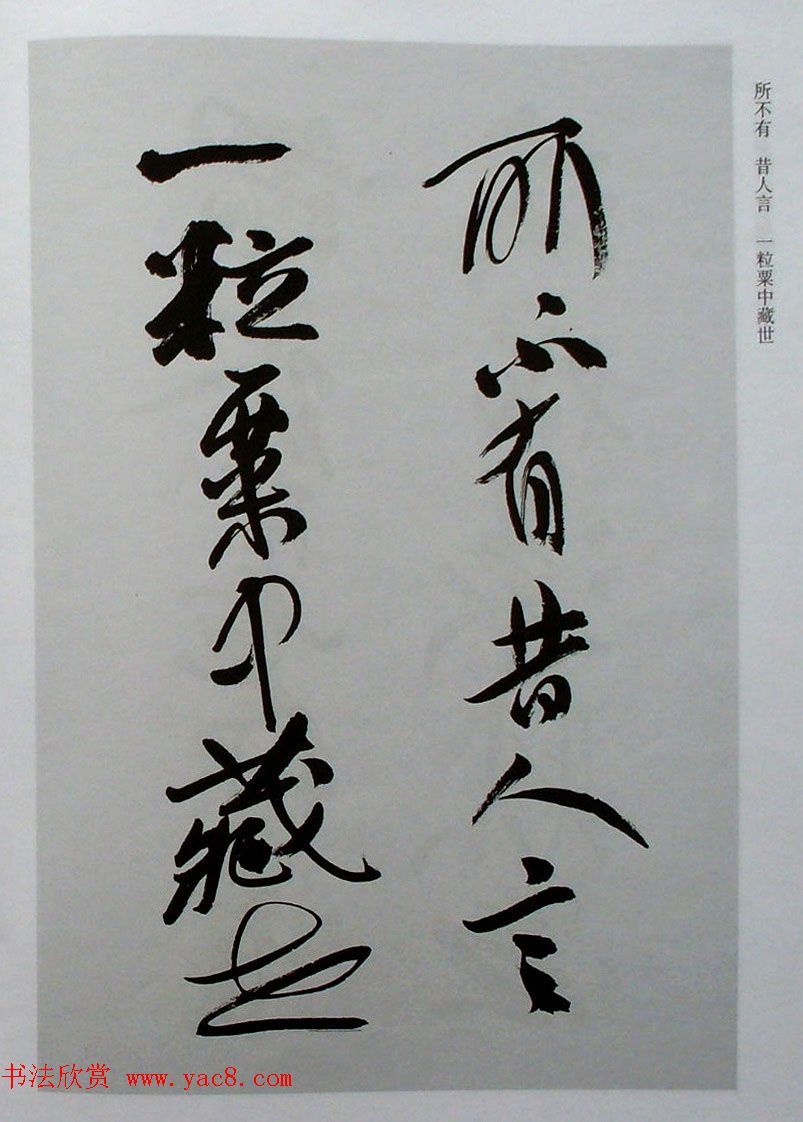 所不有 昔人言 一粒粟中藏世
所不有昔人言
一粒粟中藏世
书法欣赏 www.yac8.com